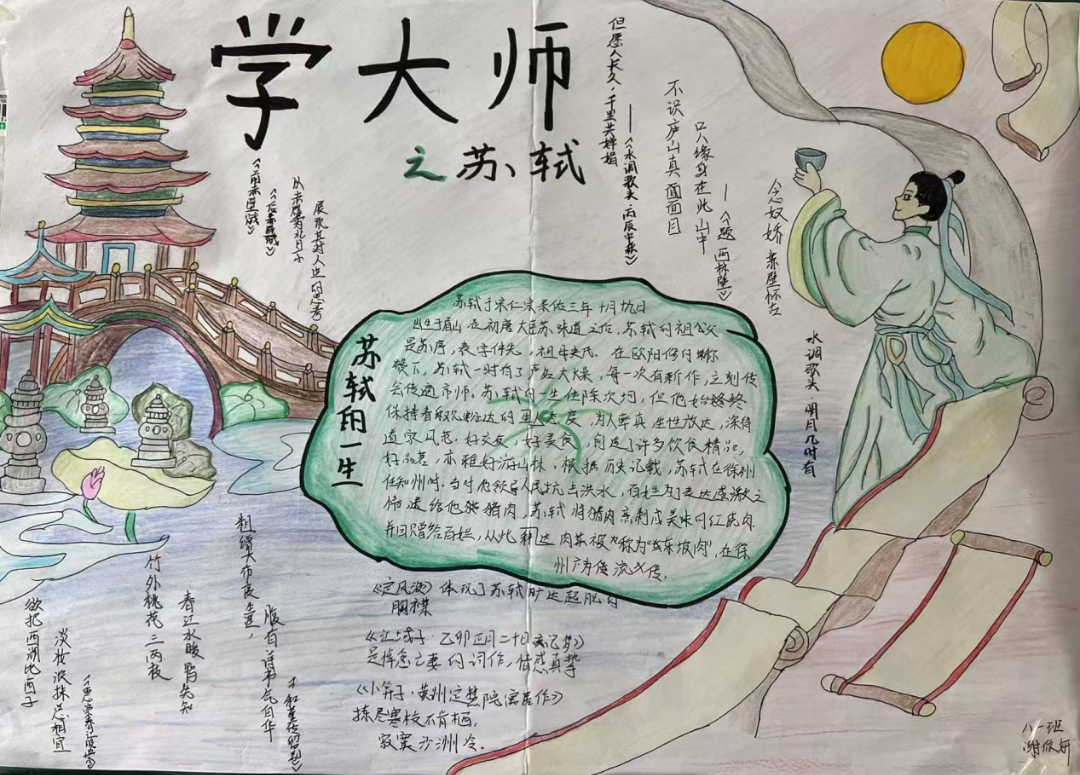 学大师
之苏轼
但愿人长久,千里共婵娟
——《水调歌头·丙辰中秋》
不识庐山真面目
只缘身在此山中
——《题西林壁》
念奴娇 赤壁怀古
水调歌头·明月几时有
《前赤壁赋》
《后赤壁赋》
展现其对人生的思考
苏轼的一生
苏轼于宋仁宗景佑三年十月
出生于眉山 在初唐大臣苏味道之后,苏轼的祖父
是苏序,表字仲先,祖母史氏。在欧阳修的
下,苏轼一时有了声名大噪,每一次有新作,立刻传
会传遍京师。苏轼的一生仕
保持着 的 态度,为人率真 生性放达,深得
道家风范。好交友,好美食,创造了许多饮食精品,
好品茗,亦雅好游山林。根据历史记载,苏轼在徐州
任知州时,当时他领导人民抗击洪水,百姓为表达感激之
情送给他猪肉,苏轼将猪肉烹制成美味的红烧肉
并回赠给百姓,从此 肉 被 称为"东坡肉",在徐
州广为传流
《定风波》体现了苏轼旷达超脱的
胸襟
《江城子 乙卯正月二十日夜记梦》
是悼念亡妻的词作,情感真挚
《小 子·黄州定慧院寓居作》
拣尽寒枝不肯栖,
寂寞沙洲冷。
粗缯大布裹生涯,
腹有诗书气自华
竹外桃花三两枝
春江水暖鸭先知
欲把西湖比西子
淡妆浓抹总相宜
八一班
谢欣妍